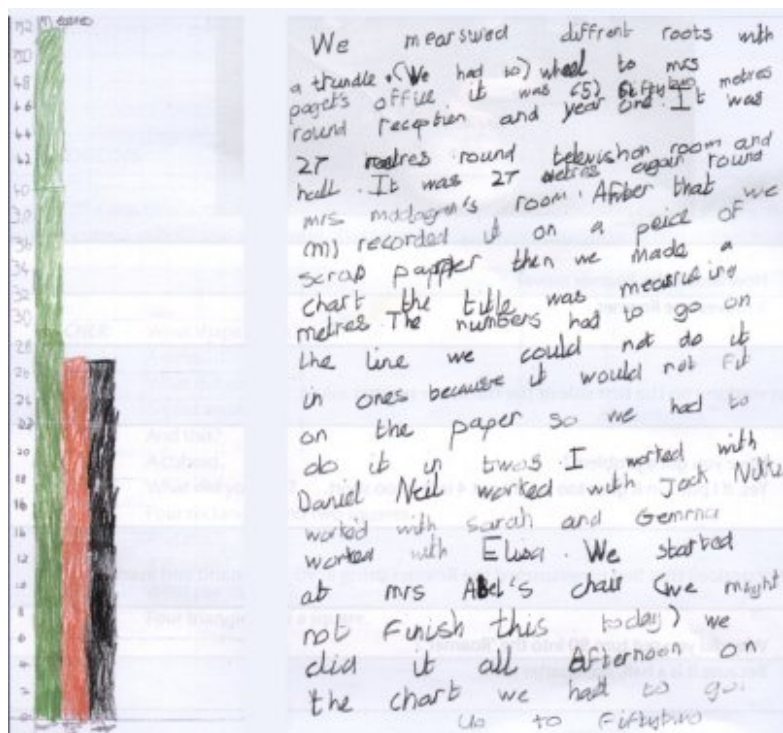 We mearswed diffrent roots with
a trundle. (We had to) wheel to mrs
paget's office it was (5) fiftytwo metres
round reception and year one. It was
27 metres round televishon room and
hall. It was 27 metres again round
mrs madagan's room. After that we
(m) recorded it on a peice of
scrap papper then we made a
chart the title was measureing
metres The numbers had to go on
the line we could not do it
in ones because it would not fit
on the paper so we had to
do it in twos. I worked with
Daniel Neil worked with Jack
worked with Sarah and Gemma
worked with Elisa. We started
at mrs Abel's chair (we might
not Finish this today) we
did it all Afternoon on
the chart we had to go
up to Fiftytwo
52
50
48
46
44
42
40
38
36
34
32
30
28
26
24
22
20
18
16
14
12
10
8
6
4
2
0
And this?